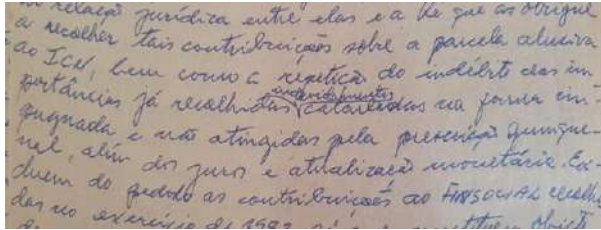 relação jurídica entre elas e a Ré que as obrigue
a recolher tais contribuições sôbre a parcela alusiva
ao ICM, bem como a repetição do indébito das im-
portâncias já recolhidas indevidamente, calculadas na forma im-
pugnada e não atingidas pela prescrição quinque-
nal, além dos juros e atualização monetária. Ex-
cluem do pedido as contribuições ao FINSOCIAL recolhi-
das no exercício de